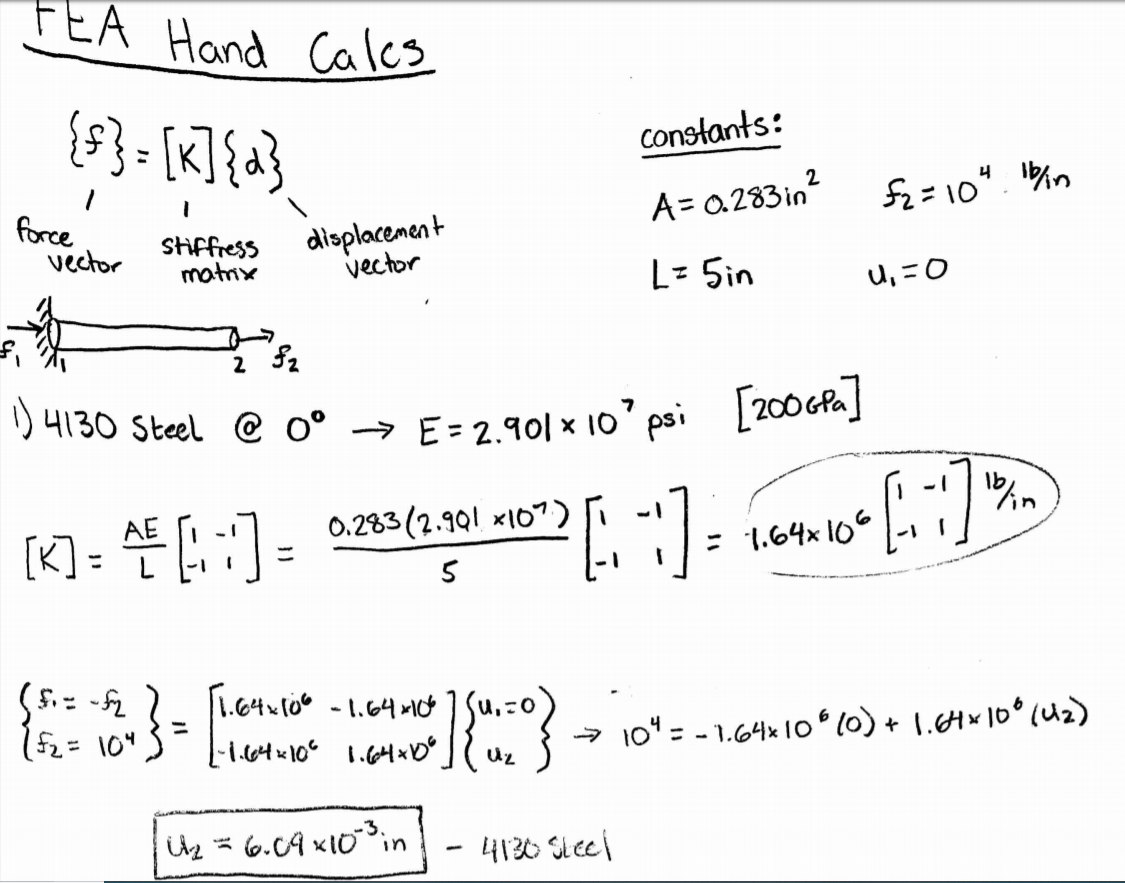 FEA Hand Calcs
{f} = [K]{d}
force vector
stiffness matrix
displacement vector
constants:
A = 0.283 in² f₂ = 10⁴ lb/in
L = 5in u₁ = 0
f₁ 1 2 f₂
1) 4130 Steel @ 0° → E = 2.901 × 10⁷ psi [200 GPa]
[K] = AE/L [1 -1; -1 1] = 0.283(2.901 ×10⁷)/5 [1 -1; -1 1] = 1.64×10⁶ [1 -1; -1 1] lb/in
{f₁ = -f₂; f₂ = 10⁴} = [1.64×10⁶ -1.64×10⁶; -1.64×10⁶ 1.64×10⁶] {u₁=0; u₂} → 10⁴ = -1.64×10⁶(0) + 1.64×10⁶(u₂)
u₂ = 6.09 ×10⁻³ in - 4130 Steel